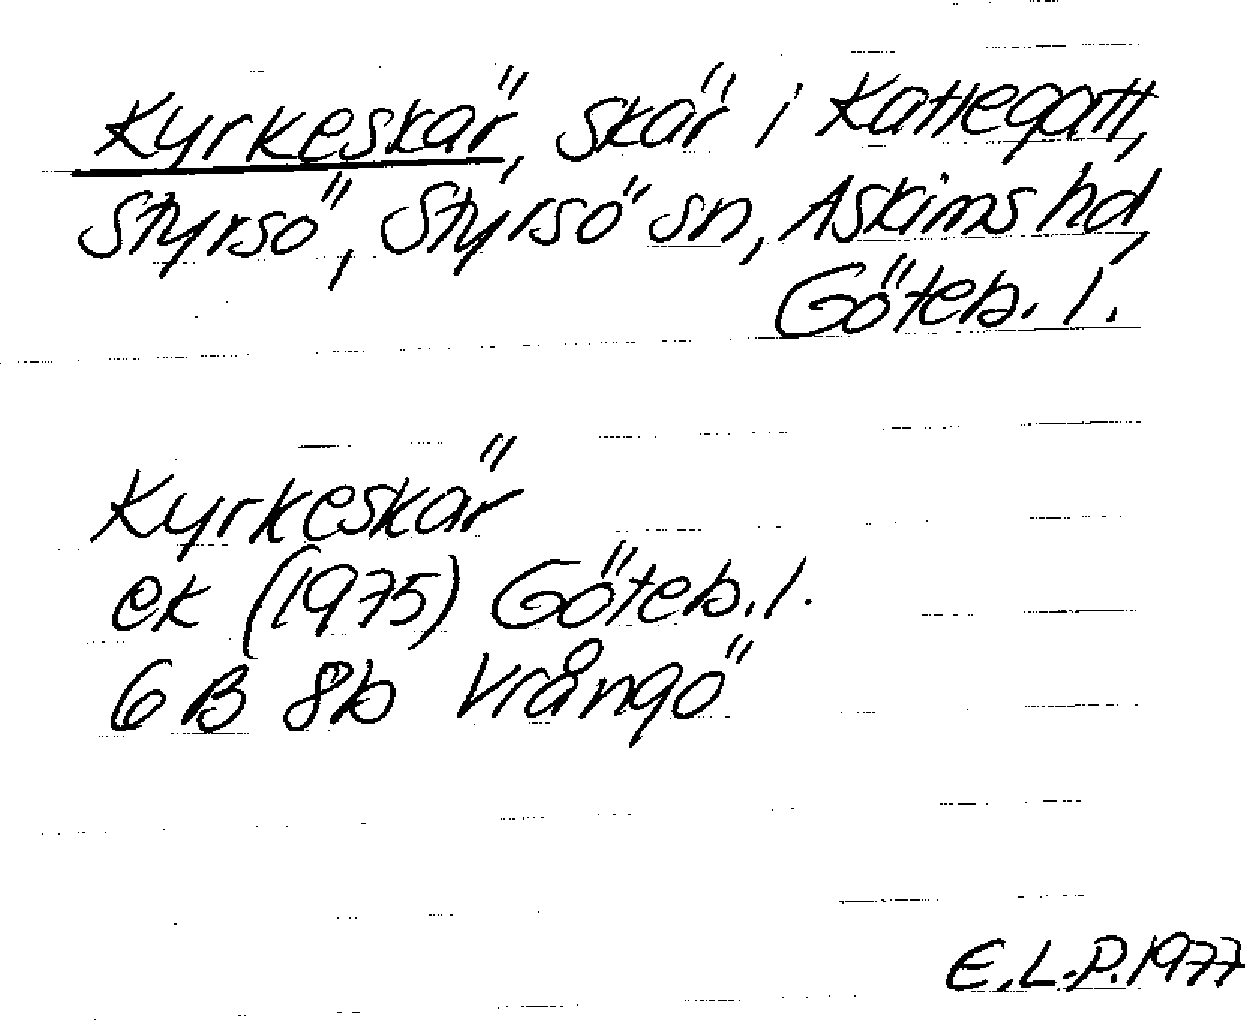 Kyrkeskär, skär i Kattegatt,
Styrsö, Styrsö sn, Askims hd,
Göteb. l.
Kyrkeskär
ek (1975) Göteb. l.
6 B 8b Vrångö
E.L-P. 1977